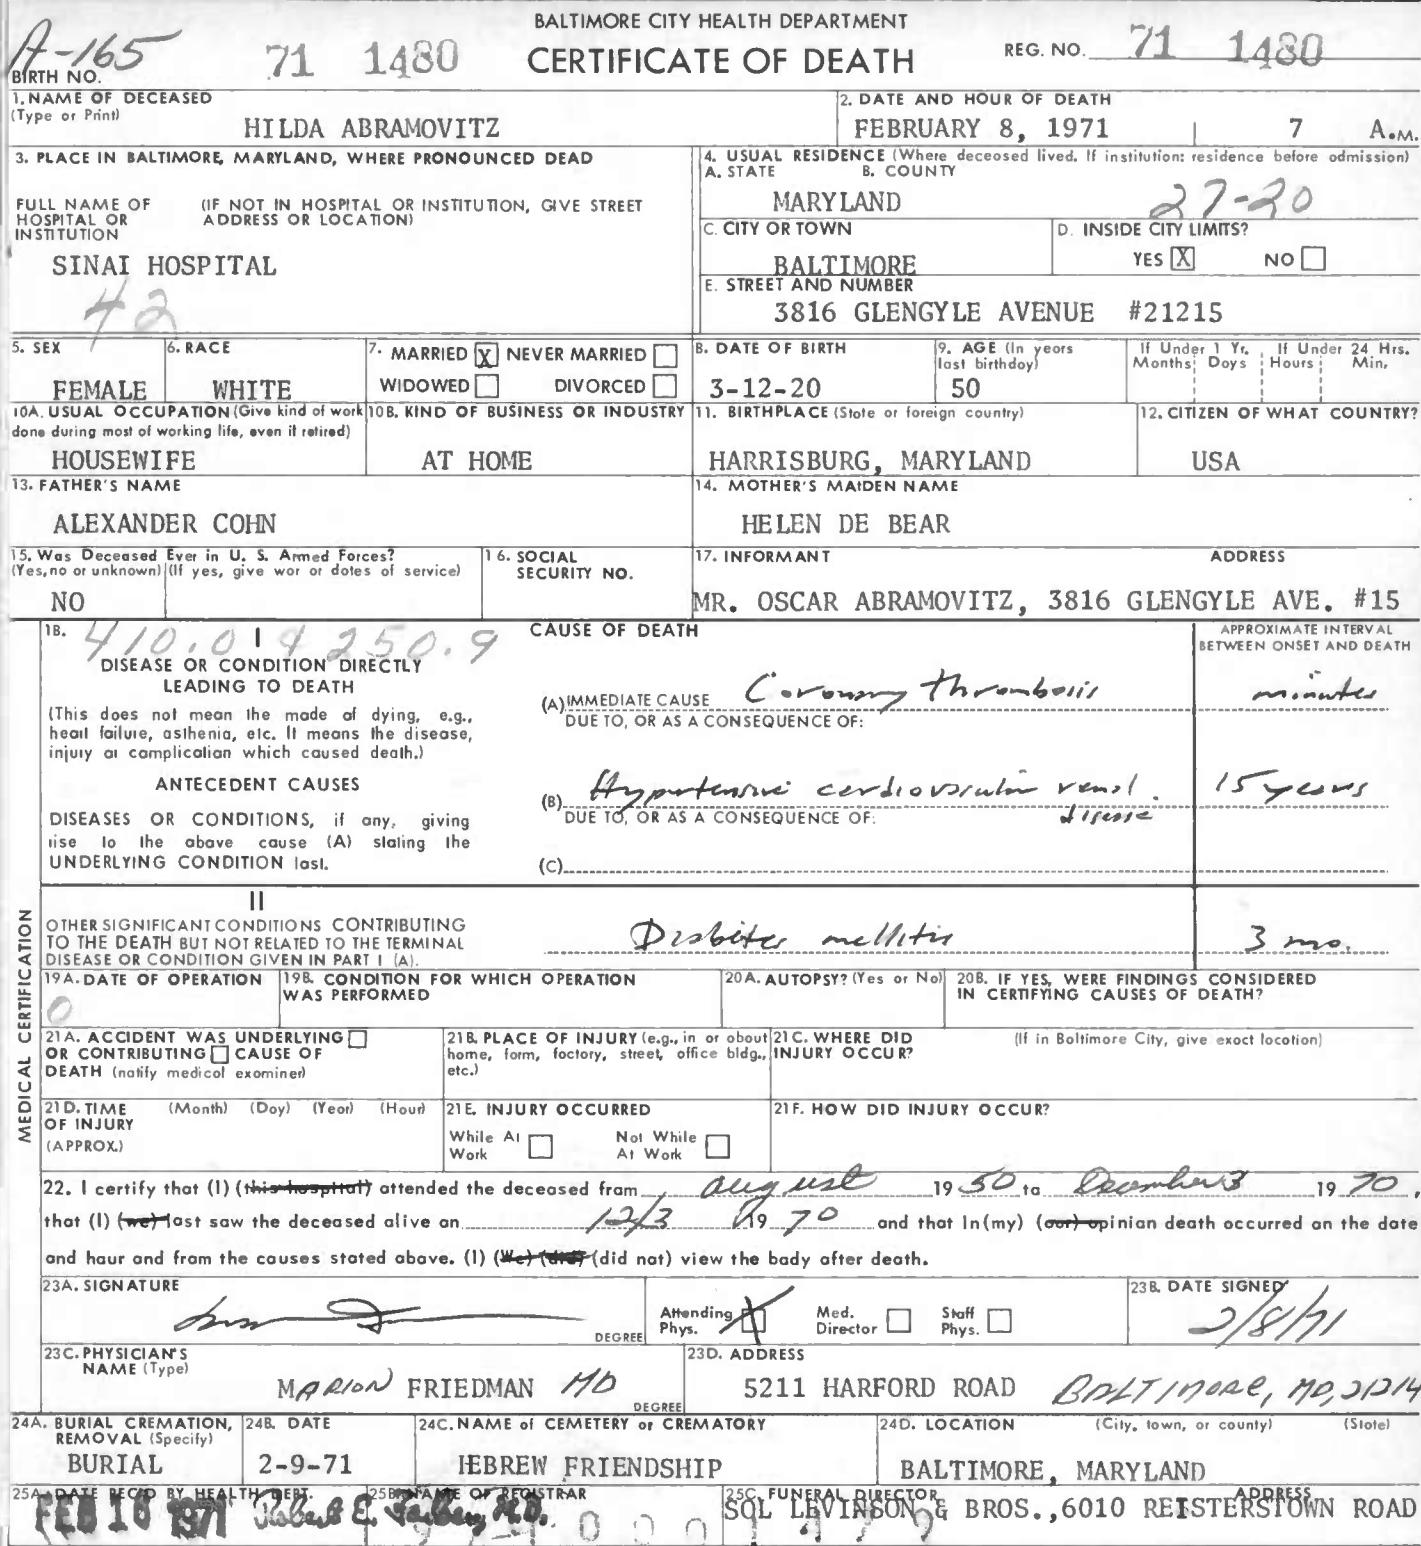 BALTIMORE CITY HEALTH DEPARTMENT
CERTIFICATE OF DEATH
A-165
BIRTH NO.
71 1480
REG. NO. 71 1480
1. NAME OF DECEASED
(Type or Print)
HILDA ABRAMOVITZ
2. DATE AND HOUR OF DEATH
FEBRUARY 8, 1971 7 A.M.
3. PLACE IN BALTIMORE, MARYLAND, WHERE PRONOUNCED DEAD
FULL NAME OF HOSPITAL OR INSTITUTION
(IF NOT IN HOSPITAL OR INSTITUTION, GIVE STREET ADDRESS OR LOCATION)
SINAI HOSPITAL
42
4. USUAL RESIDENCE (Where deceased lived. If institution: residence before admission)
A. STATE B. COUNTY
MARYLAND 27-20
C. CITY OR TOWN
BALTIMORE
D. INSIDE CITY LIMITS?
YES X NO
E. STREET AND NUMBER
3816 GLENGYLE AVENUE #21215
5. SEX
FEMALE
6. RACE
WHITE
7. MARRIED X NEVER MARRIED
WIDOWED DIVORCED
8. DATE OF BIRTH
3-12-20
9. AGE (In years last birthday)
50
If Under 1 Yr. If Under 24 Hrs.
Months Days Hours Min.
10A. USUAL OCCUPATION (Give kind of work done during most of working life, even if retired)
HOUSEWIFE
10B. KIND OF BUSINESS OR INDUSTRY
AT HOME
11. BIRTHPLACE (State or foreign country)
HARRISBURG, MARYLAND
12. CITIZEN OF WHAT COUNTRY?
USA
13. FATHER'S NAME
ALEXANDER COHN
14. MOTHER'S MAIDEN NAME
HELEN DE BEAR
15. Was Deceased Ever in U. S. Armed Forces?
(Yes, no or unknown) (If yes, give war or dates of service)
NO
16. SOCIAL SECURITY NO.
17. INFORMANT ADDRESS
MR. OSCAR ABRAMOVITZ, 3816 GLENGYLE AVE. #15
MEDICAL CERTIFICATION
18. 410.0 4 250.9
I
DISEASE OR CONDITION DIRECTLY
LEADING TO DEATH
(This does not mean the mode of dying, e.g.,
heart failure, asthenia, etc. It means the disease,
injury or complication which caused death.)
ANTECEDENT CAUSES
DISEASES OR CONDITIONS, if any, giving
rise to the above cause (A) stating the
UNDERLYING CONDITION last.
CAUSE OF DEATH
APPROXIMATE INTERVAL
BETWEEN ONSET AND DEATH
(A) IMMEDIATE CAUSE Coronary thrombosis minutes
DUE TO, OR AS A CONSEQUENCE OF:
(B) Hypertensive cardiovascular renal disease 15 years
DUE TO, OR AS A CONSEQUENCE OF:
(C)
II
OTHER SIGNIFICANT CONDITIONS CONTRIBUTING
TO THE DEATH BUT NOT RELATED TO THE TERMINAL
DISEASE OR CONDITION GIVEN IN PART I (A).
Diabites mellitis 3 mo.
19A. DATE OF OPERATION
0
19B. CONDITION FOR WHICH OPERATION WAS PERFORMED
20A. AUTOPSY? (Yes or No)
20B. IF YES, WERE FINDINGS CONSIDERED IN CERTIFYING CAUSES OF DEATH?
21A. ACCIDENT WAS UNDERLYING
OR CONTRIBUTING CAUSE OF
DEATH (notify medical examiner)
21B. PLACE OF INJURY (e.g., in or about home, farm, factory, street, office bldg., etc.)
21C. WHERE DID INJURY OCCUR?
(If in Baltimore City, give exact location)
21D. TIME OF INJURY (APPROX.)
(Month) (Day) (Year) (Hour)
21E. INJURY OCCURRED
While At Work Not While At Work
21F. HOW DID INJURY OCCUR?
22. I certify that (I) (this hospital) attended the deceased from august 19 50 to December 3 19 70,
that (I) (we) last saw the deceased alive on 12/3 19 70 and that in (my) (our) opinion death occurred on the date
and hour and from the causes stated above. (I) (We) (did) (did not) view the body after death.
23A. SIGNATURE
DEGREE
Attending Phys. X Med. Director Staff Phys.
23B. DATE SIGNED
2/8/71
23C. PHYSICIAN'S NAME (Type)
MARION FRIEDMAN MD
DEGREE
23D. ADDRESS
5211 HARFORD ROAD BALTIMORE, MD, 21214
24A. BURIAL CREMATION, REMOVAL (Specify)
BURIAL
24B. DATE
2-9-71
24C. NAME of CEMETERY or CREMATORY
HEBREW FRIENDSHIP
24D. LOCATION (City, town, or county) (State)
BALTIMORE, MARYLAND
25A. DATE REC'D BY HEALTH DEPT.
FEB 10 1971
25B. NAME OF REGISTRAR
Robert E. Farber, M.D.
25C. FUNERAL DIRECTOR ADDRESS
SOL LEVINSON & BROS., 6010 REISTERSTOWN ROAD